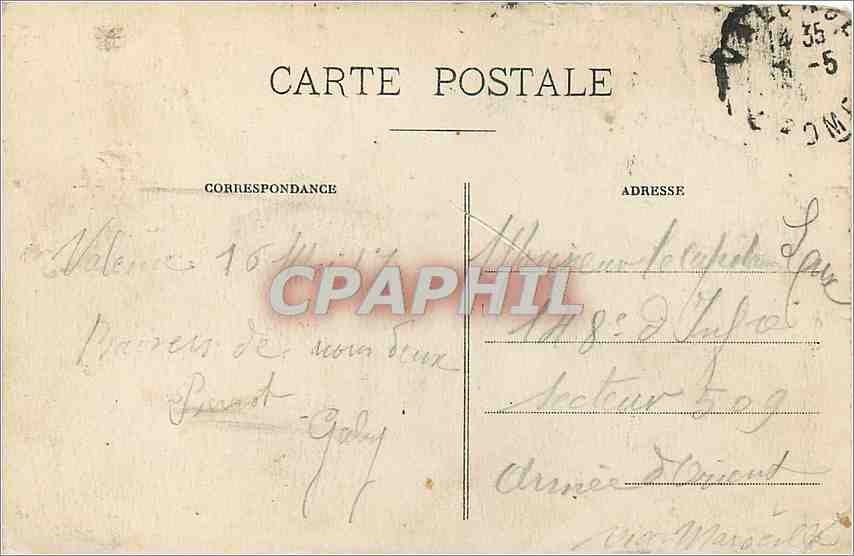 CARTE POSTALE
35
-5
CORRESPONDANCE
ADRESSE
Valence 16 Mai 17
Baisers de nous deux
Gaby
Monsieur le capitaine
148e d'Infie
Secteur 509
Armée d'Orient
via Marseille
CPAPHIL